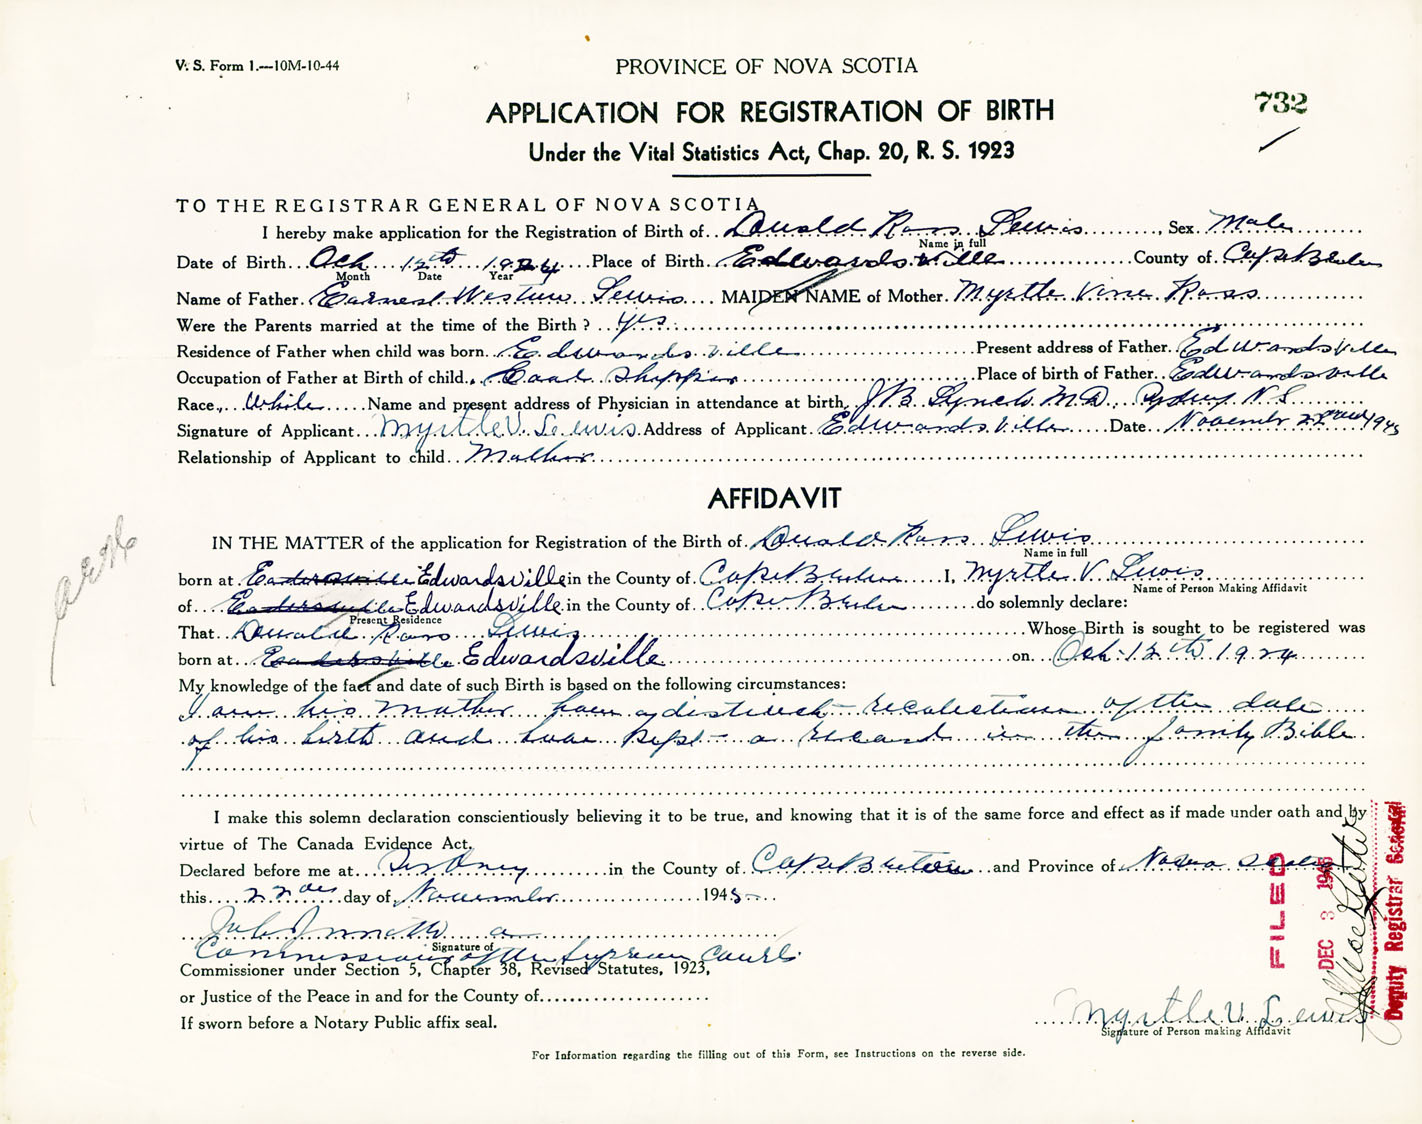 V. S. Form 1.—10M-10-44
PROVINCE OF NOVA SCOTIA
732
APPLICATION FOR REGISTRATION OF BIRTH
Under the Vital Statistics Act, Chap. 20, R. S. 1923
TO THE REGISTRAR GENERAL OF NOVA SCOTIA
I hereby make application for the Registration of Birth of Donald Ross Lewis, Sex Male
Name in full
Date of Birth Oct 12th 1924 Place of Birth Edwardsville County of Cape Breton
Month Date Year
Name of Father Earnest Lewis MAIDEN NAME of Mother Myrtle Vine Ross
Were the Parents married at the time of the Birth? yes
Residence of Father when child was born Edwardsville Present address of Father Edwardsville
Occupation of Father at Birth of child Shipper Place of birth of Father Edwardsville
Race White Name and present address of Physician in attendance at birth J B Lynch M D Sydney N S
Signature of Applicant Myrtle V. Lewis Address of Applicant Edwardsville Date November 22nd 1945
Relationship of Applicant to child Mother
AFFIDAVIT
IN THE MATTER of the application for Registration of the Birth of Donald Ross Lewis
Name in full
born at Edwardsville in the County of Cape Breton I, Myrtle V Lewis
Name of Person Making Affidavit
of Edwardsville in the County of Cape Breton do solemnly declare:
Present Residence
That Donald Ross Lewis Whose Birth is sought to be registered was
born at Edwardsville on Oct 12th 1924
My knowledge of the fact and date of such Birth is based on the following circumstances:
I am his mother have a distinct recolection of the date
of his birth and have kept a record in the family Bible
I make this solemn declaration conscientiously believing it to be true, and knowing that it is of the same force and effect as if made under oath and by
virtue of The Canada Evidence Act.
Declared before me at Sydney in the County of Cape Breton and Province of Nova Scotia
this 22nd day of November 1945
a
Signature of
Commissioner of the Supreme Court
Commissioner under Section 5, Chapter 38, Revised Statutes, 1923,
or Justice of the Peace in and for the County of
If sworn before a Notary Public affix seal.
Myrtle V. Lewis
Signature of Person making Affidavit
For Information regarding the filling out of this Form, see Instructions on the reverse side.
FILED
DEC 3 1945
Deputy Registrar General